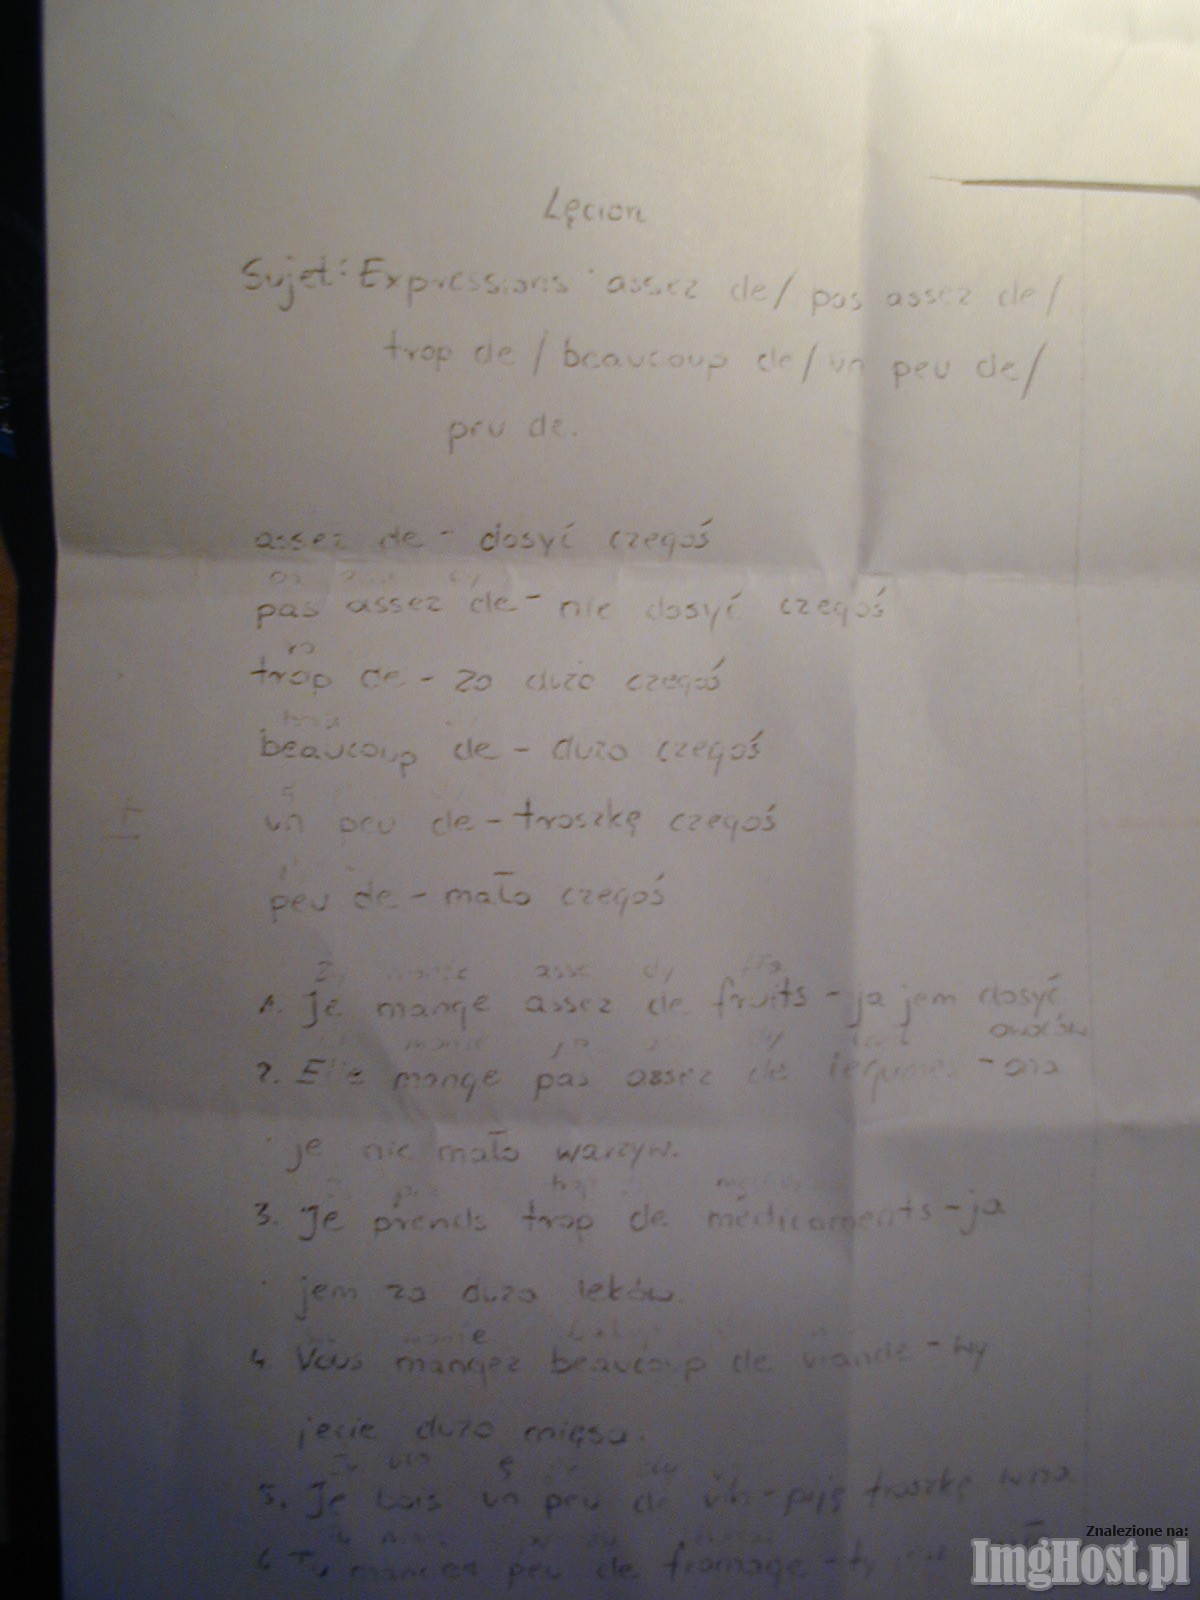 Lęcion
Sujet: Expressions assez de/ pas assez de/
trop de / beaucoup de/ un peu de/
peu de.
assez de - dosyć czegoś
pas assez de - nie dosyć czegoś
trop de - za dużo czegoś
beaucoup de - dużo czegoś
un peu de - troszkę czegoś
peu de - mało czegoś
asse dy
1. Je mange assez de fruits - ja jem dosyć
owoców
2. Elle mange pas assez de legumes - ona
je nie mało warzyw.
3. Je prends trop de médicaments - ja
jem za dużo leków.
4. Vous mangez beaucoup de viande - wy
jecie dużo mięsa.
5. Je bois un peu de vin - piję troszkę wina
6. Tu manges peu de fromage - ty
Znalezione na:
ImgHost.pl